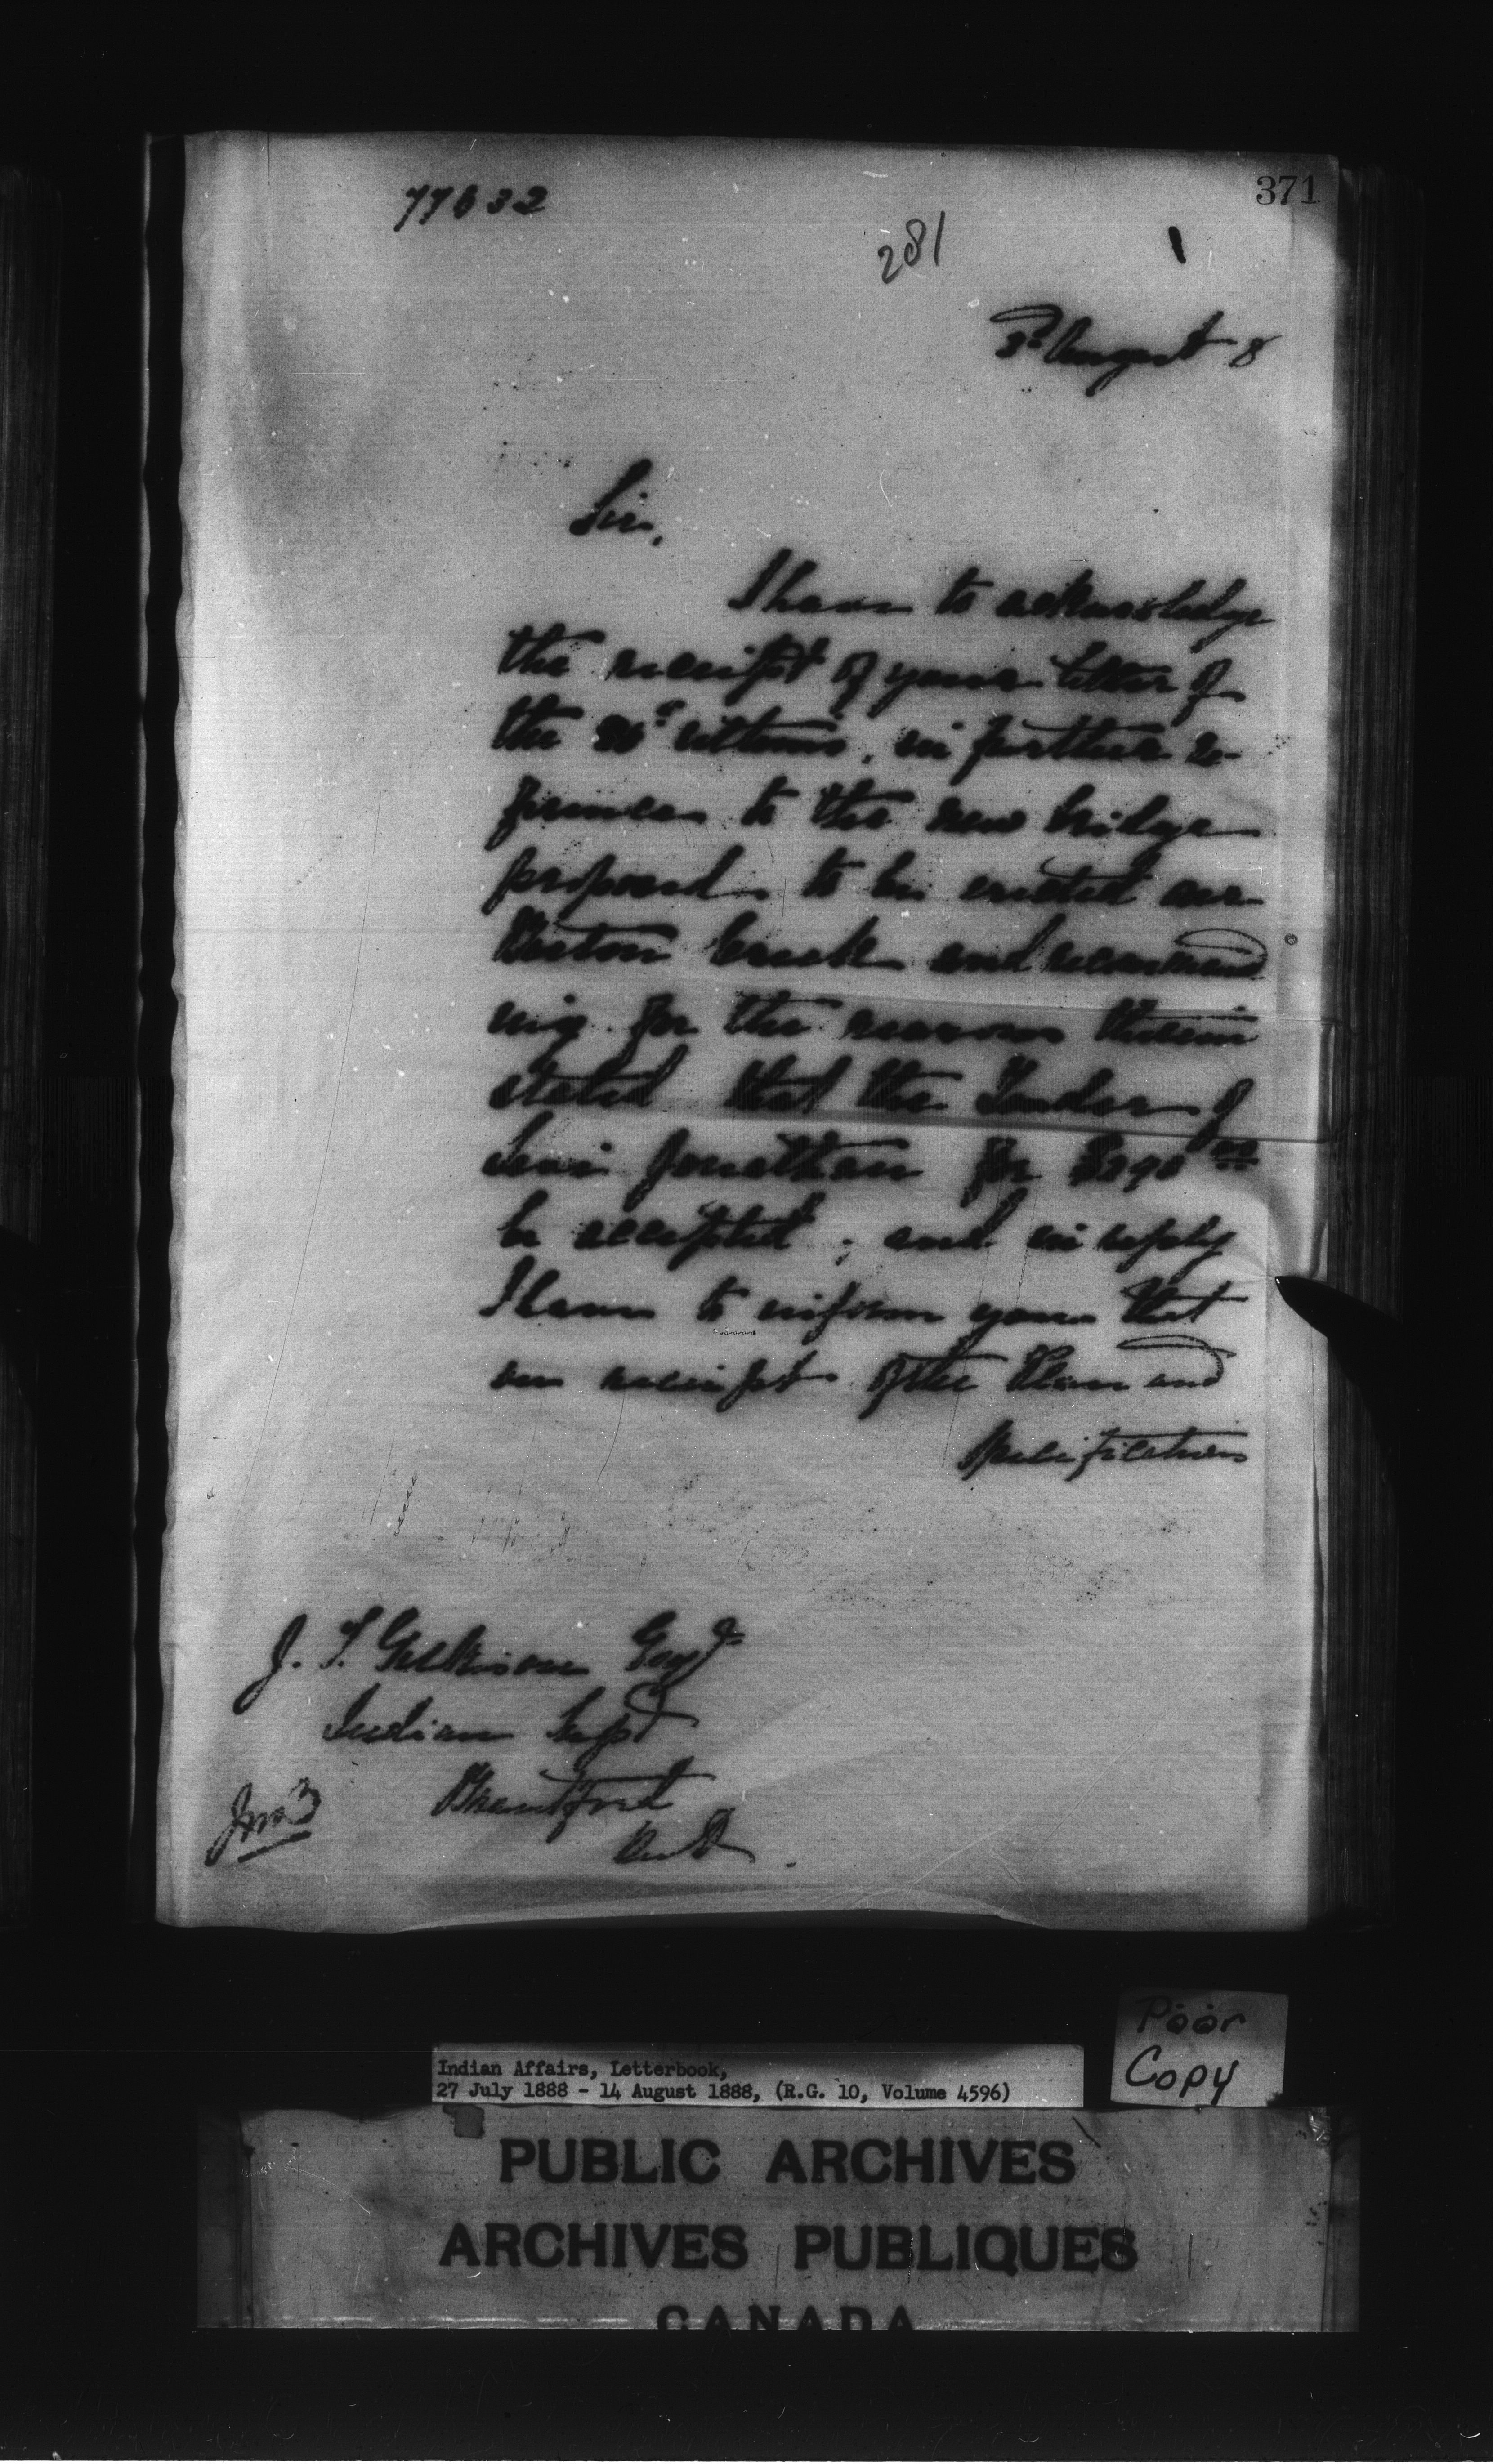 77632
371
281
3rd August 8
Sir,
I have to acknowledge
the receipt of your letter of
the ultimo, in further re-
ference to the new bridge
proposed to be erected over
Creek and recommend
ing for the reasons therein
stated that the Tender of
Levi Jonathan for $290
be accepted; and in reply
I have to inform you that
on receipt of the Plan and
Specifications
J. T. Gilkison Esqr
Indian Supt
Brantford
Ont.
Poor
Copy
Indian Affairs, Letterbook,
27 July 1888 - 14 August 1888, (R.G. 10, Volume 4596)
PUBLIC ARCHIVES
ARCHIVES PUBLIQUES
CANADA